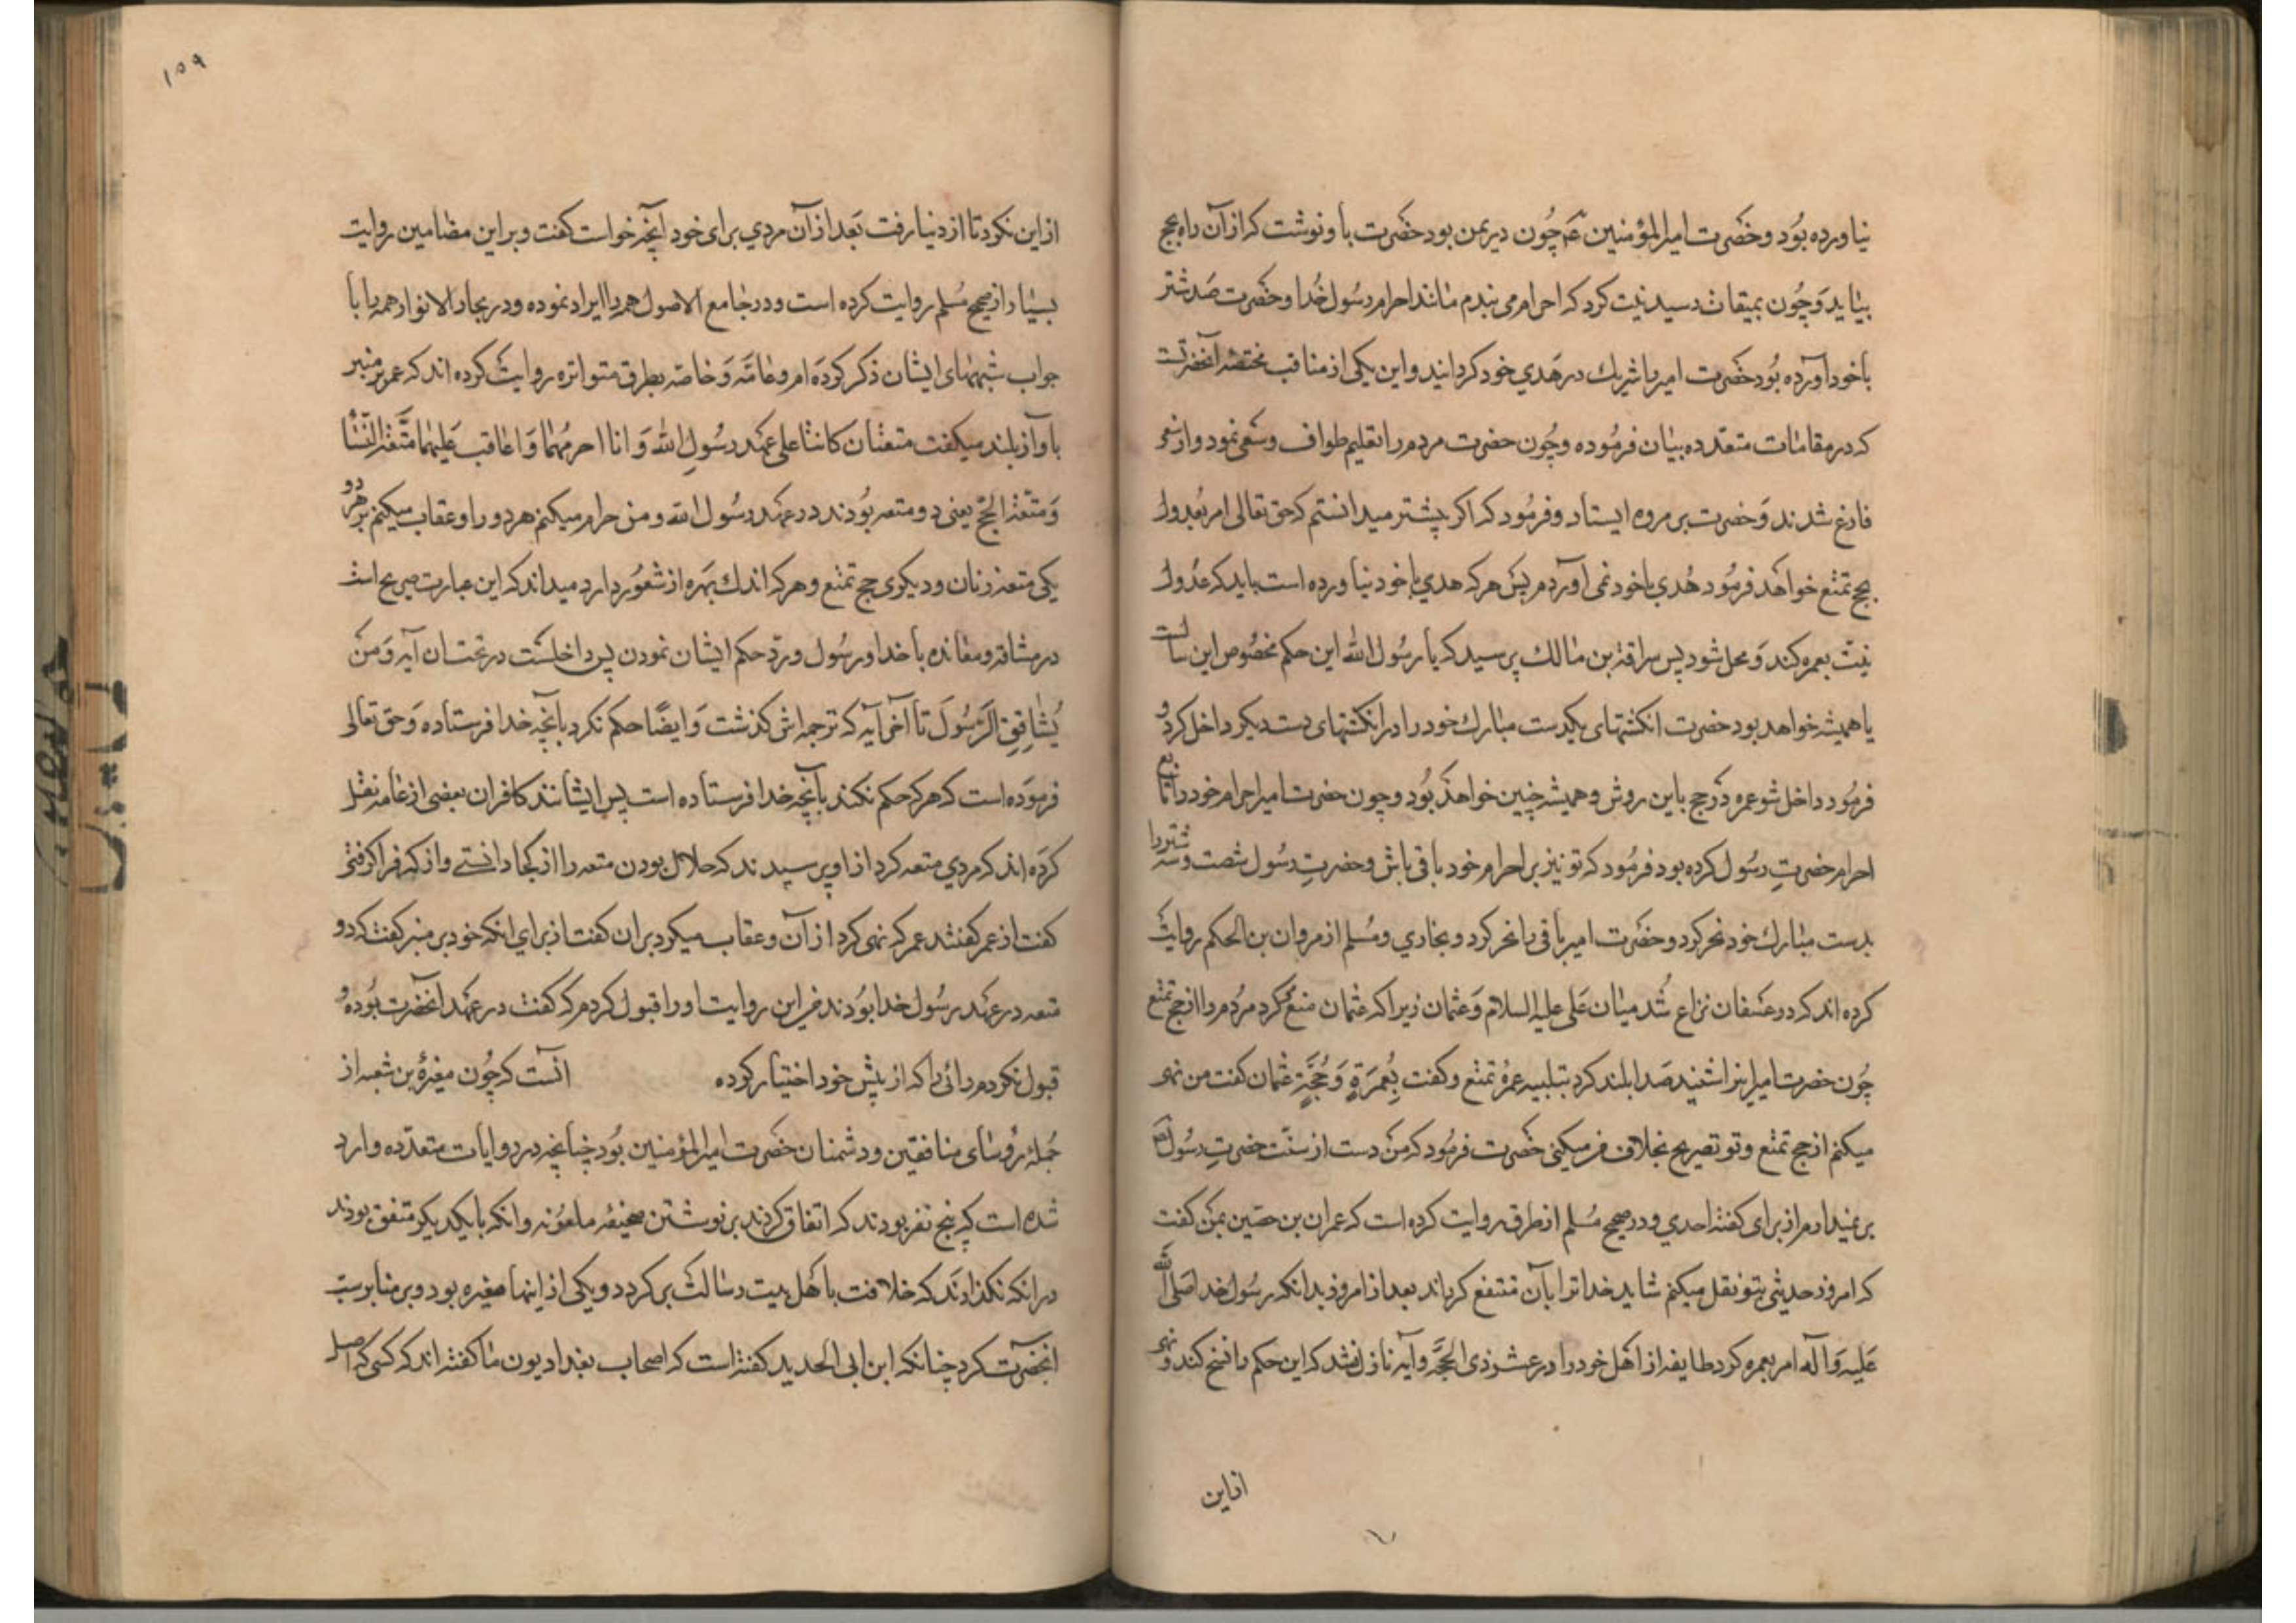 نیاورده بود و حضرت امیرالمؤمنین عم چون در یمن بود حضرت باو نوشت که از آن راه بحج
بیاید و چون بمیقات رسید نیت کرد که احرام می بندم مانند احرام رسول خدا و حضرت صد شتر
با خود آورده بود حضرت امیر را شریك در هدي خود کردانید و این یکی از مناقب مختصهٔ آنحضرتست
که در مقامات متعدده بیان فرموده و چون حضرت مردم را تعلیم طواف و سعی نمود و از سعی
فارغ شدند و حضرت بر مروه ایستاد و فرمود که اکر پیشتر میدانستم که حق تعالی امر بعدول
بحج تمتع خواهد فرمود هدي با خود نمی آوردم پس هرکه هدي با خود نیاورده است باید که عدول
نیت بعمره کند و محل شود پس سراقة بن مالك پرسید که یا رسول الله این حکم مخصوص این سالست
یا همیشه خواهد بود حضرت انکشتهای یکدست مبارك خود را در انکشتهای دست دیکر داخل کرد و
فرمود داخل شو عمره در حج باین روش و همیشه چنین خواهد بود و چون حضرت امیر احرام خود را تابع
احرام حضرت رسول کرده بود فرمود که تو نیز بر احرام خود باقی باش و حضرت رسول شصت و سه شتر را
بدست مبارك خود نحر کرد و حضرت امیر باقی را نحر کرد و بخاري و مسلم از مروان بن الحکم روایت
کرده اند که در عسفان نزاع شد میان علی علیه السلام و عثمان زیرا که عثمان منع کرد مردم را از حج تمتع
چون حضرت امیر اینرا شنید صدا بلند کرد بتلبیه عمرهٔ تمتع و کفت بعمرة و حجة عثمان کفت من نهی
میکنم از حج تمتع و تو تصریح بخلاف من میکنی حضرت فرمود که من دست از سنت حضرت رسول ص
بر نمیدارم از برای کفتهٔ احدي و در صحیح مسلم از طرق روایت کرده است که عمران بن حصین بمن کفت
که امروز حدیثی بتو نقل میکنم شاید خدا ترا بآن منتفع کرداند بعد از امروز بدانکه رسول خدا صلی الله
علیه و آله امر بعمره کرد طایفه از اهل خود را در عشر ذی الحجه و آیه نازل نشد که این حکم را نسخ کند و نهی
از این
١٥٩
از این نکرد تا از دنیا رفت بعد از آن مردي برای خود آنچه خواست کفت و بر این مضامین روایت
بسیار از صحیح مسلم روایت کرده است و در جامع الاصول همه را ایراد نموده و در بحار الانوار همه را با
جواب شبههای ایشان ذکر کرده ام و عامه و خاصه بطرق متواتره روایت کرده اند که عمر بر منبر
بآواز بلند میکفت متعتان کانتا علی عهد رسول الله و انا احرمهما و اعاقب علیهما متعة النساء
و متعة الحج یعنی دو متعه بودند در عهد رسول الله و من حرام میکنم هر دو را و عقاب میکنم بر هر دو
یکی متعهٔ زنان و دیکری حج تمتع و هرکه اندك بهره از شعور دارد میداند که این عبارت صریح است
در مشاقه و معانده با خدا و رسول و رد حکم ایشان نمودن پس داخلست در تحت ان آیه و من
یشاقق الرسول تا آخر آیه که ترجمه اش کذشت و ایضا حکم نکرد بآنچه خدا فرستاده و حق تعالی
فرموده است که هرکه حکم نکند بآنچه خدا فرستاده است پس ایشانند کافران بعضی از عامه نقل
کرده اند که مردي متعه کرد از او پرسیدند که حلال بودن متعه را از کجا دانستے و از که فرا کرفتی
کفت از عمر کفتند عمر که نهی کرد از آن و عقاب میکرد بران کفت از براي انکه خود بر منبر کفت که دو
متعه در عهد رسول خدا بودند من این روایت او را قبول کردم که کفت در عهد آنحضرت بوده و
قبول نکردم رائی را که از پیش خود اختیار کرده آنست که چون مغیرهٔ بن شعبه از
جملهٔ رؤسای منافقین و دشمنان حضرت امیرالمؤمنین بود چنانچه در روایات متعدده وارد
شده است که پنج نفر بودند که اتفاق کردند بر نوشتن صحیفهٔ ملعونه و انکه با یکدیکر متفق بودند
در انکه نکذارند که خلافت باهل بیت رسالت بر کردد و یکی از اینها مغیره بود و بر منابر سب
آنحضرت کرد چنانکه ابن ابی الحدید کفته است که اصحاب بغدادیون ما کفته اند که کسی که اصل